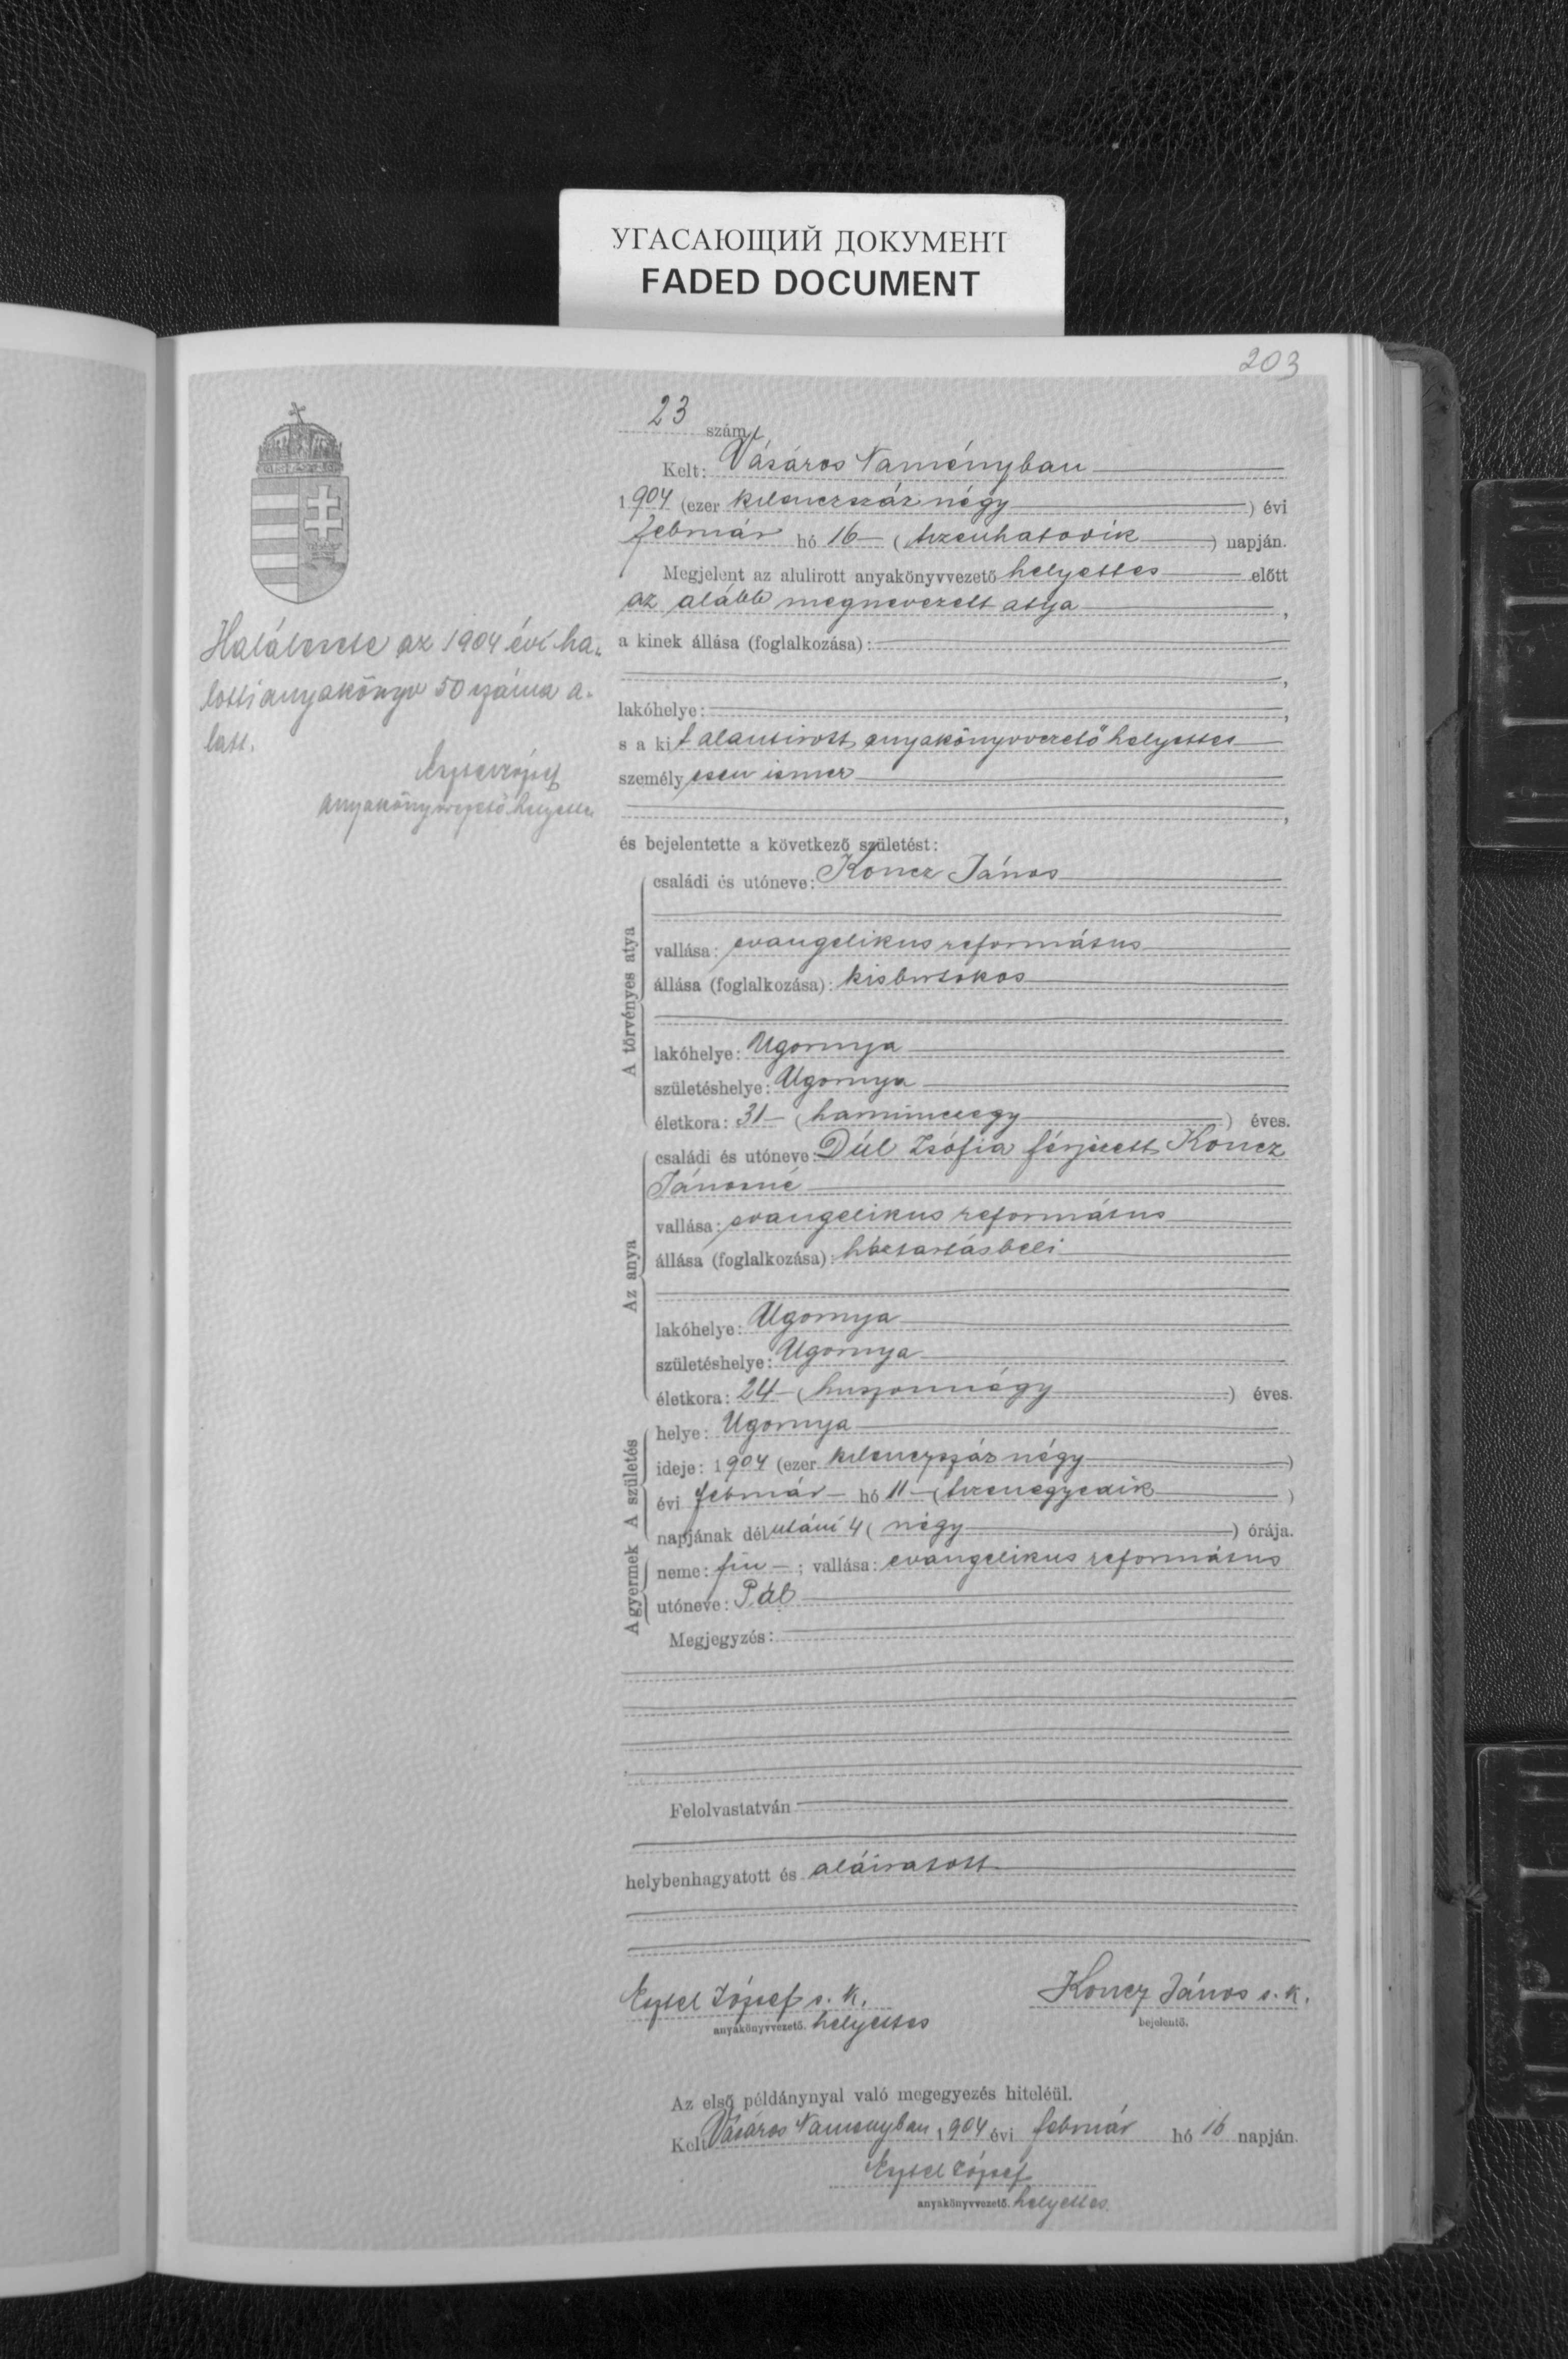 УГАСАЮЩИЙ ДОКУМЕНТ
FADED DOCUMENT
203
23 szám
Kelt: Vásáros Naményban
1904 (ezer kilenczszáz négy) évi
február hó 16 (tizenhatodik) napján.
Megjelent az alulirott anyakönyvvezető helyettes előtt
az alább megnevezett atya,
a kinek állása (foglalkozása):
lakóhelye:
s a kit alantirott anyakönyvvezető helyettes
személyesen ismer
és bejelentette a következő születést:
A törvényes atya
családi és utóneve: Koncz János
vallása: evangelikus református
állása (foglalkozása): kisbirtokos
lakóhelye: Ugornya
születéshelye: Ugornya
életkora: 31 (harminczegy) éves.
Az anya
családi és utóneve: Dúl Zsófia férjezett Koncz
Jánosné
vallása: evangelikus református
állása (foglalkozása): háztartásbeli
lakóhelye: Ugornya
születéshelye: Ugornya
életkora: 24 (huszonnégy) éves.
A születés
helye: Ugornya
ideje: 1904 (ezer kilenczszáz négy)
évi február hó 11 (tizenegyedik)
napjának délutáni 4 (négy) órája.
A gyermek
neme: fiu; vallása: evangelikus református
utóneve: Pál
Megjegyzés:
Felolvastatván
helybenhagyatott és aláiratott
Eyssel József s. k.
anyakönyvvezető. helyettes
Koncz János s. k.
bejelentő.
Az első példánynyal való megegyezés hiteléül.
Kelt Vásáros Naményban 1904 évi február hó 16 napján.
József
anyakönyvvezető. helyettes.
Halálesete az 1904 évi ha-
lotti anyakönyv 50 száma a-
latt.
József
anyakönyvvezető helyettes